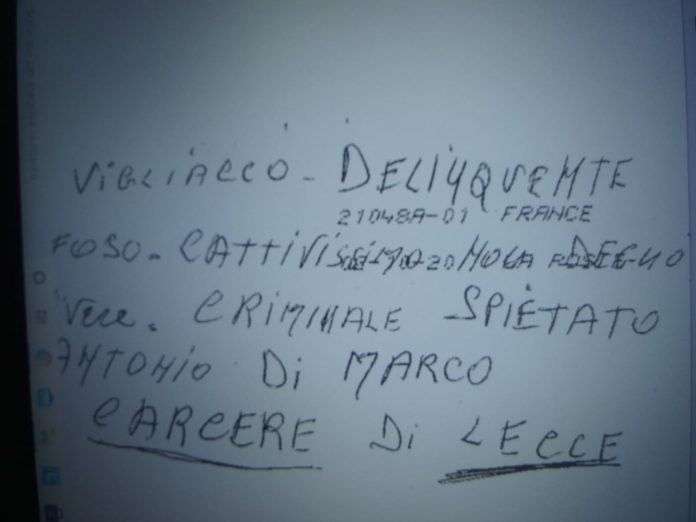 VIGLIACCO - DELIMQUEMTE
21048A-01 FRANCE
FOSO - CATTIVISSIMO
Vere. CRIMIMALE SPIETATO
AMTOMIO Di MARCO
CARCERE Di LECCE